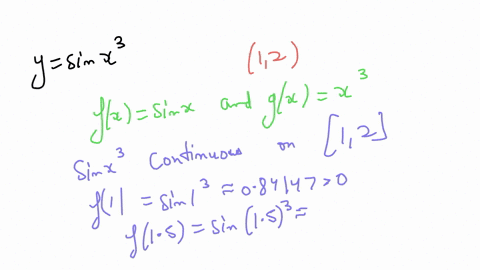 y = sin x³
(1,2)
f(x) = sin x and g(x) = x³
Sin x³ Continuous on [1,2]
f(1) = sin 1³ ≈ 0.84147 > 0
f(1.5) = sin (1.5)³ ≈